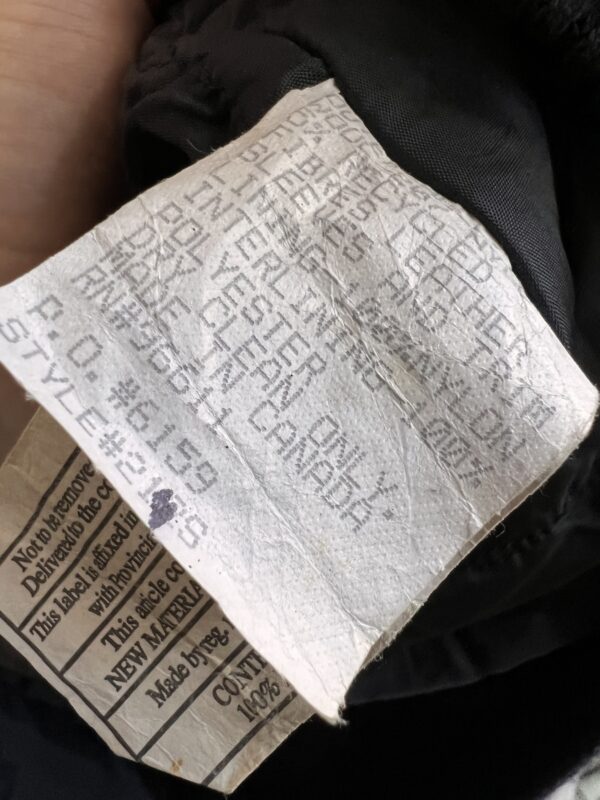 RECYCLED
FIBRES
SLEEVES AND TRIM
LEATHER
LINING 100% NYLON
INTERLINING 100%
POLYESTER
DRY CLEAN ONLY.
MADE IN CANADA
RN#96611
P.O.#6159
STYLE#21
Not to be remove
Delivered to the co
This label is affixed in
with Provinci
This article co
NEW MATERIA
Made by reg.
CONT
100%